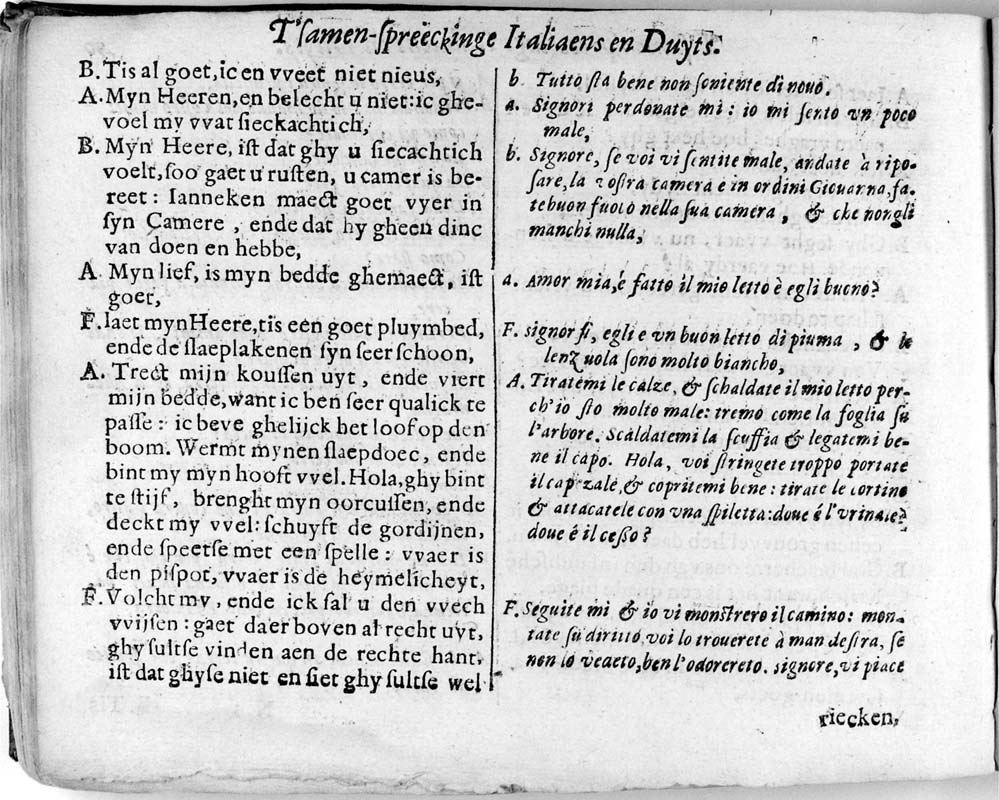 Tſamen-ſpreeckinge Italiaens en Duyts.
B. Tis al goet, ic en vveet niet nieus,
A. Myn Heeren, en belecht u niet: ic ghe-
voel my vvat ſieckachtich,
B. Myn Heere, iſt dat ghy u ſiecachtich
voelt, ſoo gaet u ruſten, u camer is be-
reet: Ianneken maect goet vyer in
ſyn Camere, ende dat hy gheen dinc
van doen en hebbe,
A. Myn lief, is myn bedde ghemaect, iſt
goet,
F. Iaet myn Heere, tis een goet pluymbed,
ende de ſlaeplakenen ſyn ſeer ſchoon,
A. Trect mijn kouſſen uyt, ende viert
mijn bedde, want ic ben ſeer qualick te
paſſe: ic beve ghelijck het loof op den
boom. Wermt mynen ſlaepdoec, ende
bint my myn hooft vvel. Hola, ghy bint
te ſtijf, brenght myn oorcuſſen, ende
deckt my vvel: ſchuyft de gordijnen,
ende ſpeetſe met een ſpelle: vvaer is
den piſpot, vvaer is de heymelicheyt,
F. Volcht my, ende ick ſal u den vvech
vvijſen: gaet daer boven al recht uyt,
ghy ſultſe vinden aen de rechte hant,
iſt dat ghyſe niet en ſiet ghy ſultſe wel
b. Tutto ſta bene non ſeniente di novo.
a. Signori perdonate mi: io mi ſento vn poco
male,
b. Signore, ſe voi vi ſentite male, andate à ripo-
ſare, la voſtra camera è in ordini Giovarna, fa-
te buon fuoco nella ſua camera, & che non gli
manchi nulla,
a. Amor mia, é fatto il mio letto è egli buono?
F. ſignor ſi, egli e vn buon letto di piuma, & le
lenzuola ſono molto biancho,
A. Tiratemi le calze, & ſchaldate il mio letto per-
ch'io ſto molto male: tremo come la foglia ſù
l'arbore. Scàldatemi la ſcuffia & legatemi be-
ne il capo. Hola, voi ſtringete troppo portate
il capezale, & copritemi bene: tirate le cortine
& attacatele con vna ſpiletta: doue é l'vrinale?
doue é il ceſſo?
F. Seguite mi & io vi monſtrero il camino: mon-
tate ſù diritto, voi lo trouerete à man deſtra, ſe
non lo vedeto, ben l'odorereto. ſignore, vi piace
riecken,